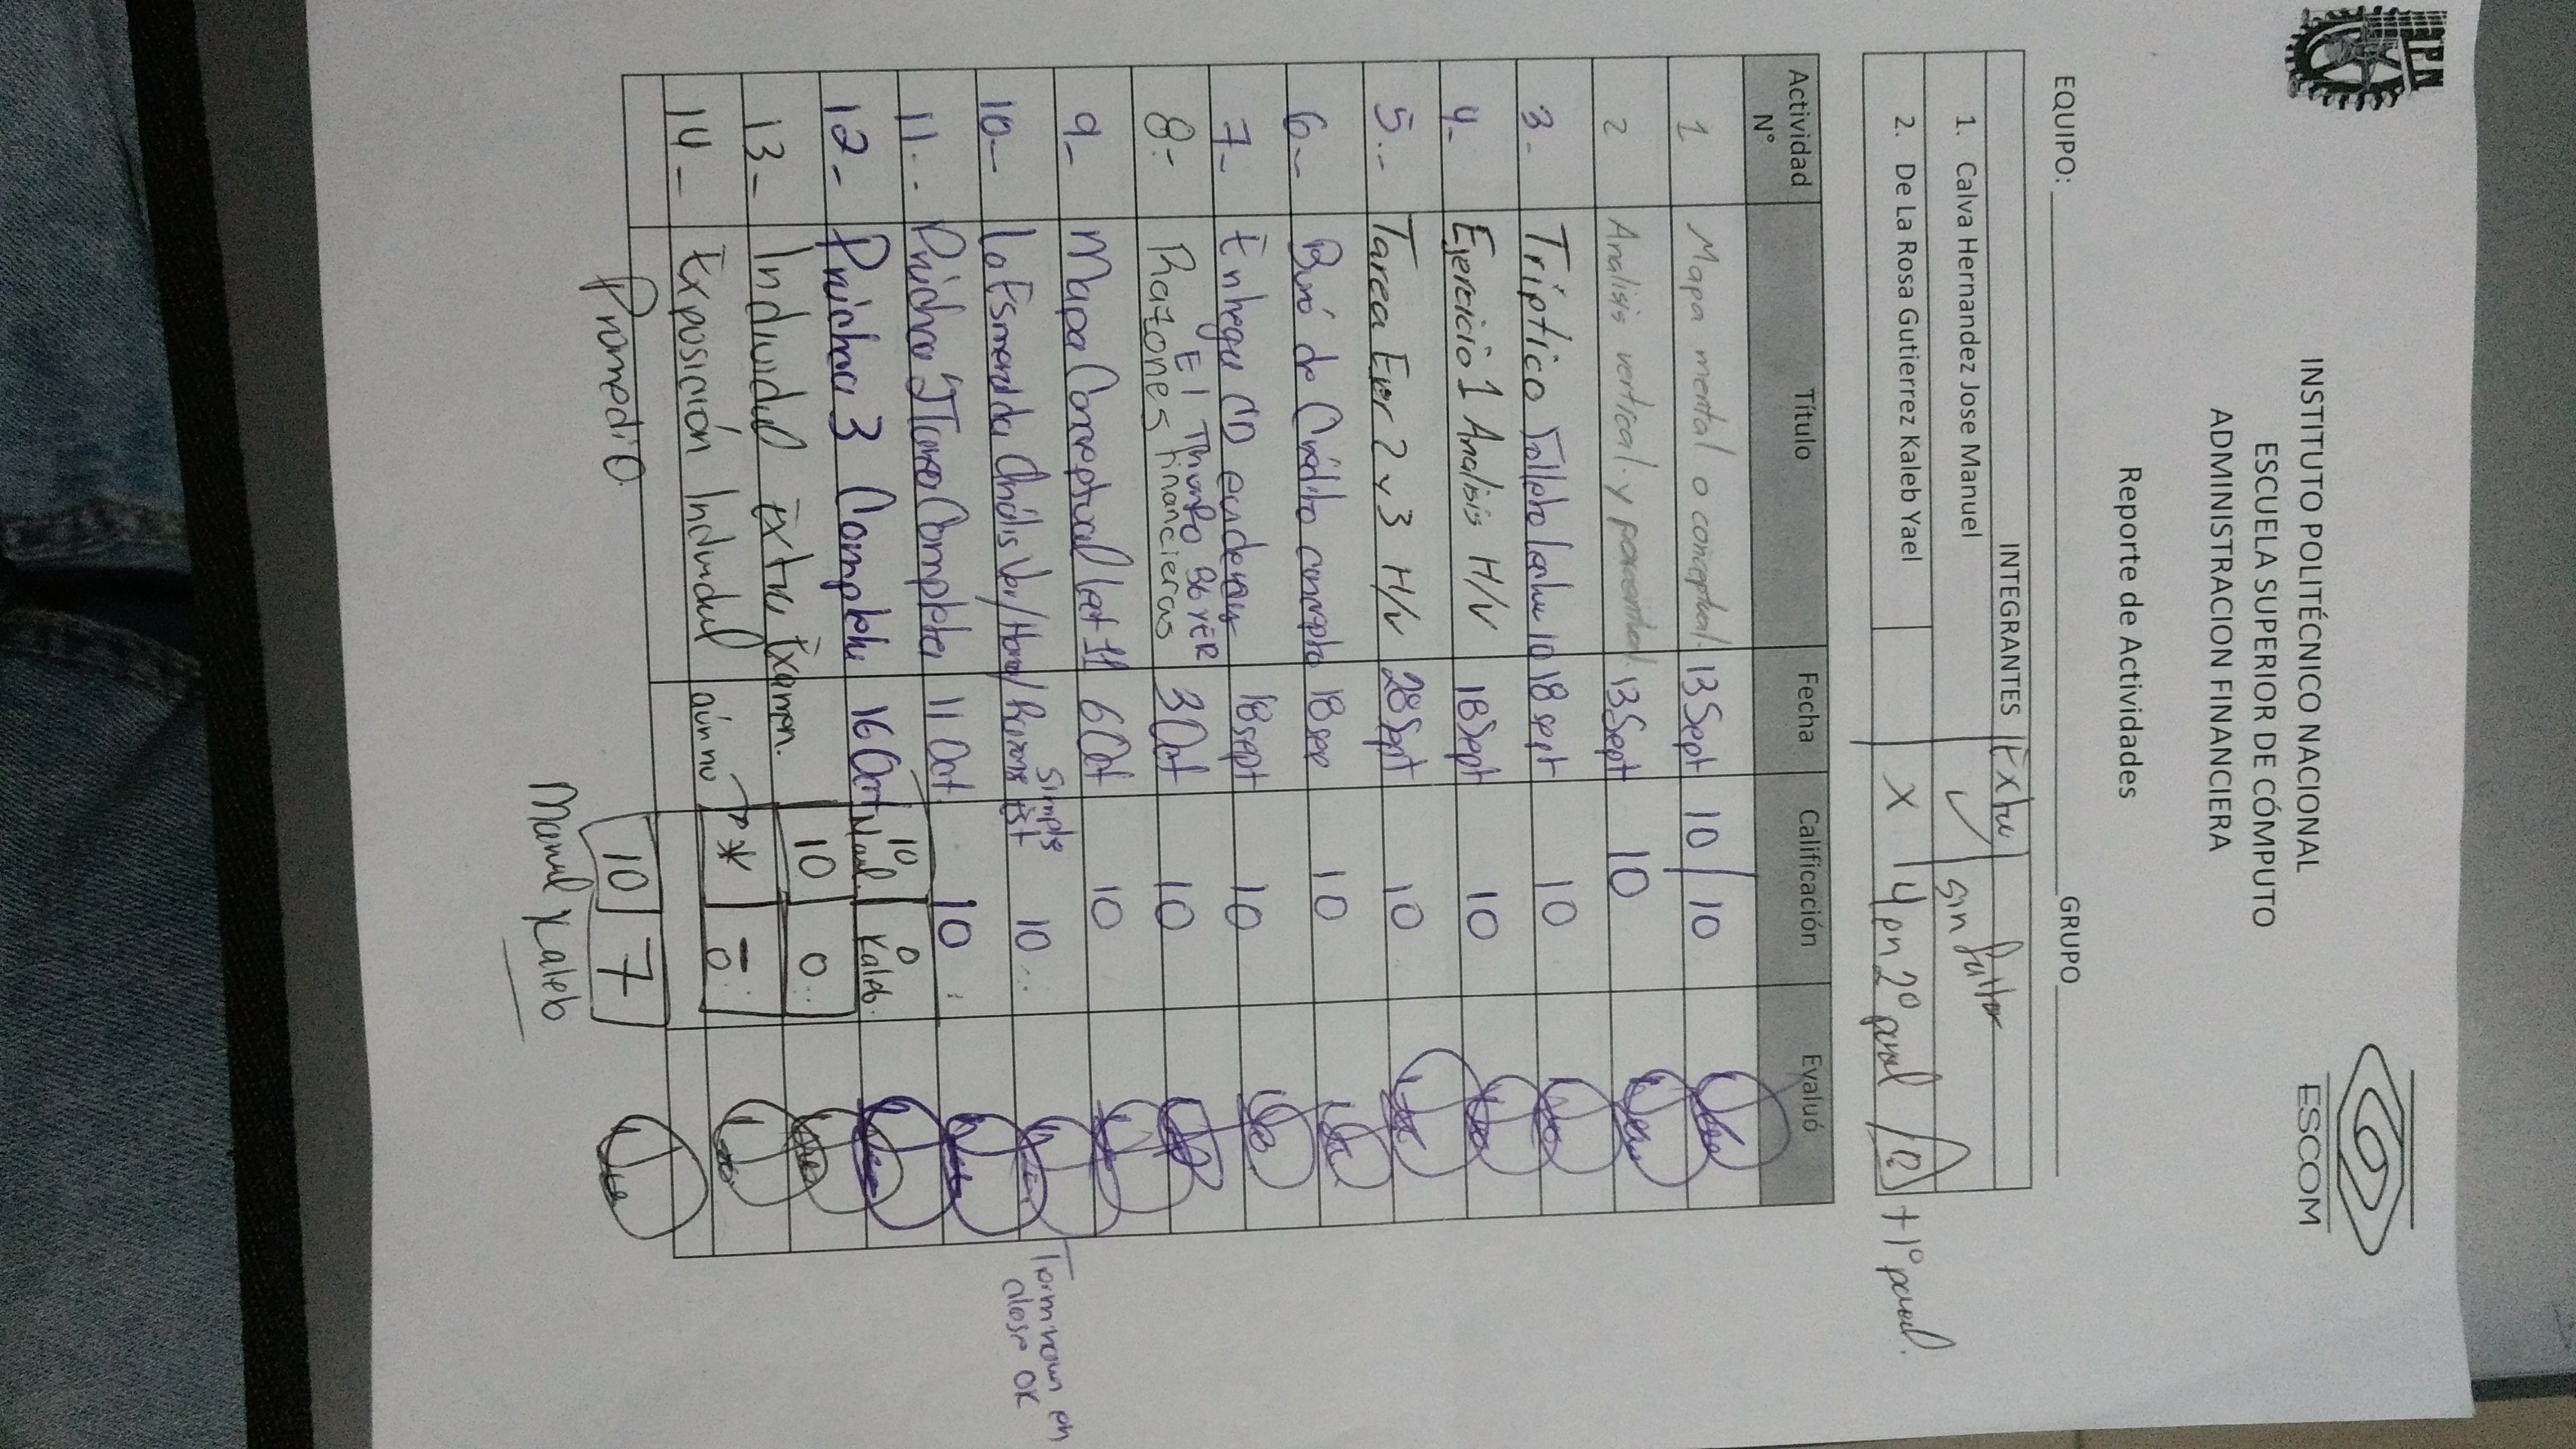 IPN
INSTITUTO POLITÉCNICO NACIONAL
ESCUELA SUPERIOR DE CÓMPUTO
ADMINISTRACION FINANCIERA
ESCOM
Reporte de Actividades
EQUIPO: GRUPO
INTEGRANTES Extra
1. Calva Hernandez Jose Manuel ✓ sin faltar
2. De La Rosa Gutierrez Kaleb Yael X 4 en 2º parcial + 1º parcial.
Actividad N° Título Fecha Calificación Evaluó
1 Mapa mental o conceptual. 13 Sept 10/10
2 Analisis vertical y 13 Sept 10
3- Tríptico Folleto 10 18 sept 10
4- Ejercicio 1 Analisis H/V 18 Sept 10
5.- Tarea Ejer 2 y 3 H/V 28 Sept 10
6.- Buró de Crédito completo 18 sep 10
7- Entrega CD evidencias 18 sept 10
8.- Razones Financieras El Triunfo BOYER 3 Oct 10
9- Mapa Conceptual 6 Oct 10
10- La Esmeralda Análisis Ver/Horiz/Razones Simples 10
11.- Práctica Completa 11 Oct. 10
12- Práctica 3 Completa 16 Oct 10 Manl. 0 Kaleb.
13- Individual Extra Examen. 10 0
14- Exposición Individual aún no * 0
Promedio 10 7
Manuel Kaleb
Terminaron en clase OK